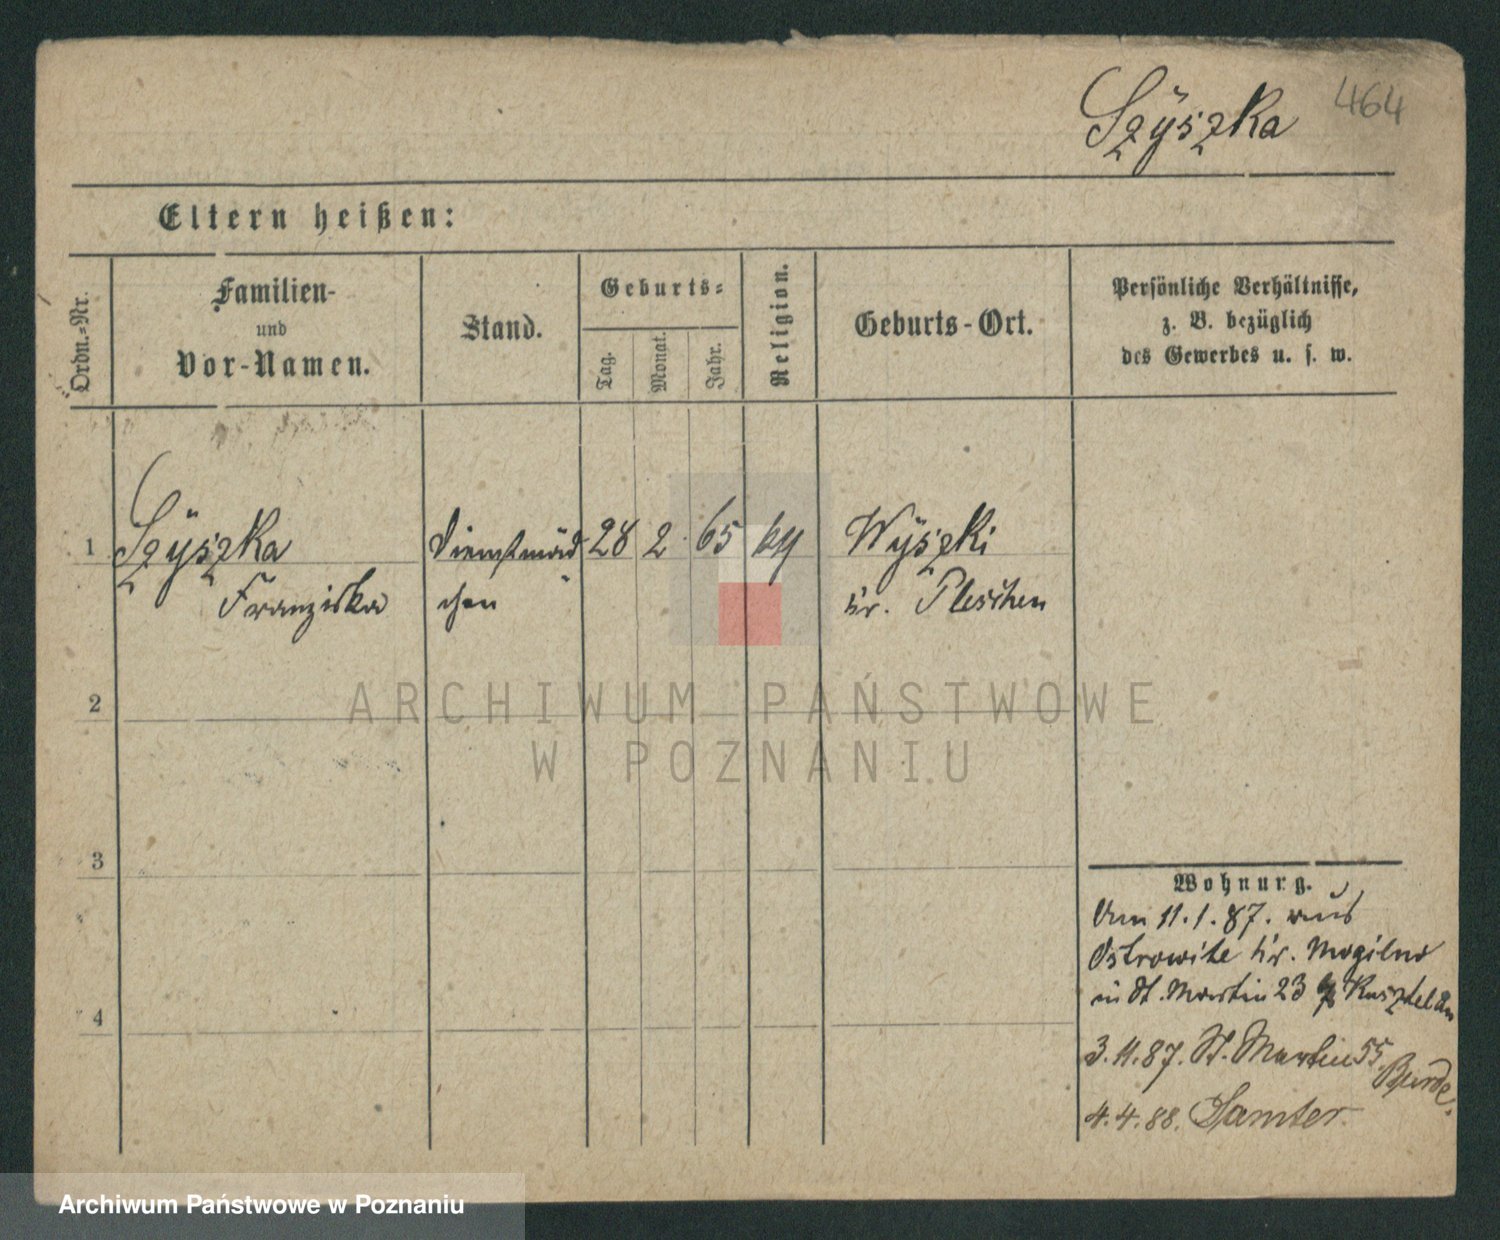 Szÿszka 464
Eltern heißen:
Ordn.-Nr.
Familien-
und
Vor-Namen.
Stand.
Geburts-
Tag.
Monat.
Jahr.
Religion.
Geburts-Ort.
Persönliche Verhältnisse,
z. B. bezüglich
des Gewerbes u. s. w.
1 Szÿszka Dienstmäd 28 2 65 Wÿszki
Franziska chen Kr. Pleschen
2
ARCHIWUM PAŃSTWOWE
W POZNANIU
3
Wohnung.
Am 11.1.87. aus
Ostrowite Kr. Mogilno
in St. Martin 23 Kasztelan
3.11.87. St. Martin 55
4
4.4.88. Samter
Archiwum Państwowe w Poznaniu